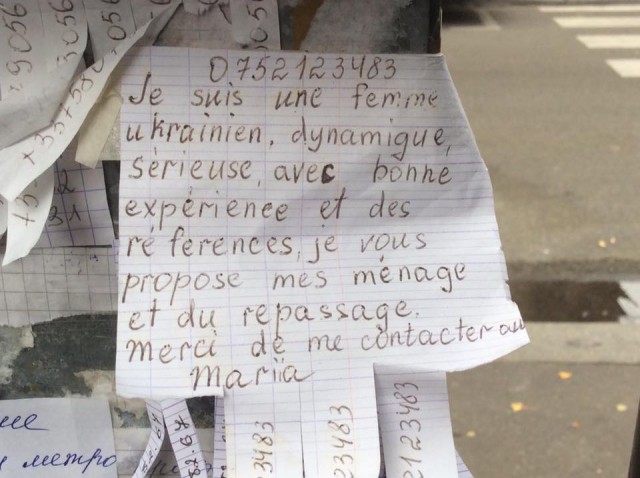 0752123483
Je suis une femme
ukrainien, dynamique,
sérieuse, avec bonne
expérience et des
ré ferences, je vous
propose mes ménage
et du repassage.
merci de me contacter au
Mariïa
3483
23483
2123483
9056
5056
метро